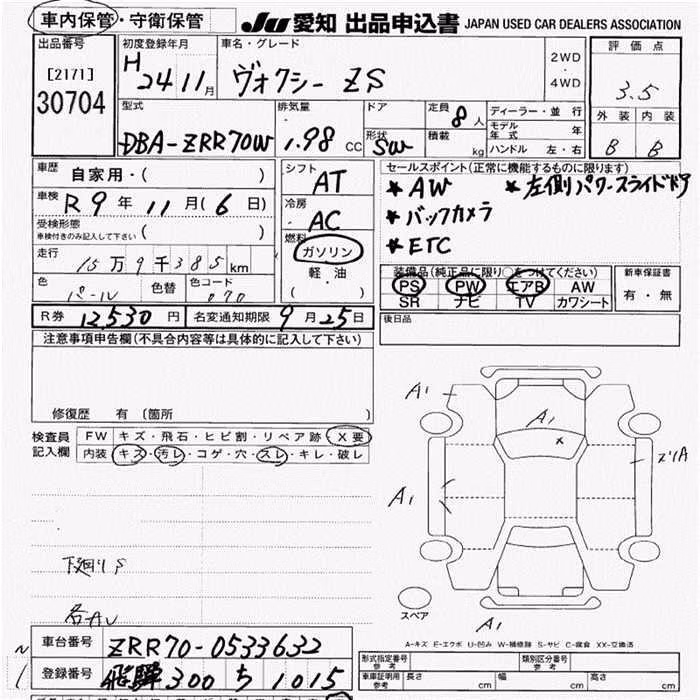 車内保管・守衛保管 JU 愛知 出品申込書 JAPAN USED CAR DEALERS ASSOCIATION
出品番号 [2171] 30704
初度登録年月 H24 11月
車名・グレード ヴォクシー ZS
2WD・4WD
評価点 3.5
外装 B 内装 B
型式 DBA-ZRR70W
排気量 1.98 CC
ドア 形状 SW
定員 8人 積載 kg
ディーラー・並行
モデル年式 年
ハンドル 左・右
車歴 自家用・( )
車検 R9年11月(6日)
受検形態 車検付きのみ記入して下さい ( )
走行 15万9千385km
色 パール 色替 色コード 070
シフト AT
冷房 AC
燃料 ガソリン 軽油 ( )
セールスポイント(正常に機能するものに限ります)
* AW * 左側パワースライドドア
* バックカメラ
* ETC
装備品(純正品に限り○をつけてください)
PS PW エアB AW
SR ナビ TV カワシート
新車保証書 有・無
R券 12,530円 名変通知期限 9月25日
後日品
注意事項申告欄(不具合内容等は具体的に記入して下さい)
修復歴 有 〔箇所 〕
検査員記入欄
FW キズ・飛石・ヒビ割・リペア跡・X要
内装 キズ・汚レ・コゲ・穴・スレ・キレ・破レ
下廻りS
各AU
A1
A1
A1
A1
X
スペア
A-キズ E-エクボ U-凹み W-補修跡 S-サビ C-腐食 XX-交換済
車台番号 ZRR70-0533632
登録番号 飛騨 300 ち 1015
型式指定番号 参考
類別区分番号 参考
車庫証明用 参考 長さ cm 幅 cm 高さ cm